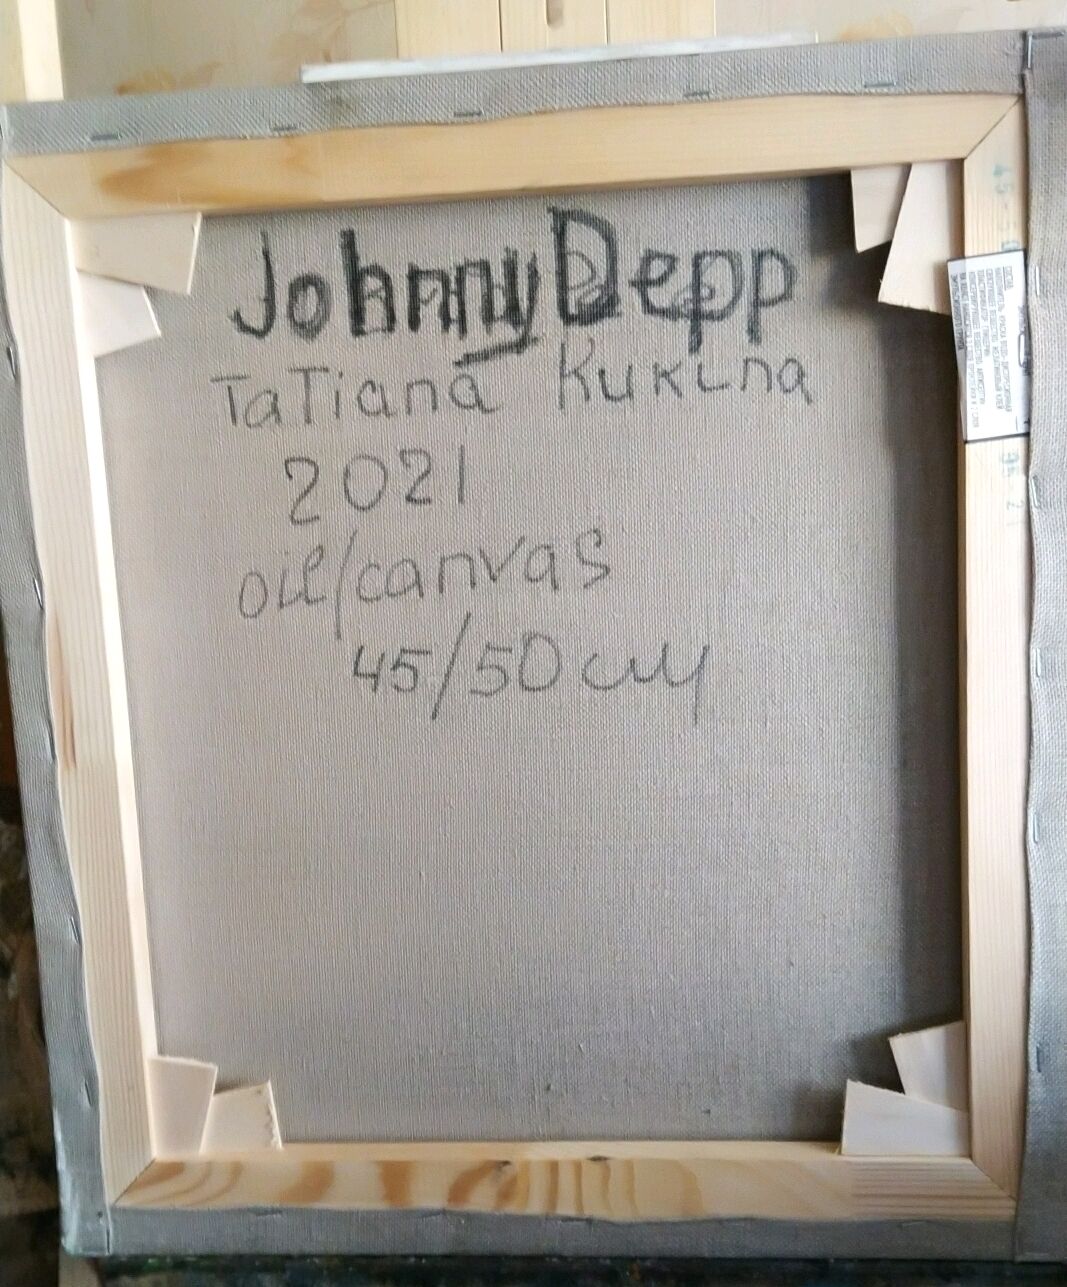 Johnny Depp
Tatiana Kukina
2021
oil/canvas
45/50 см